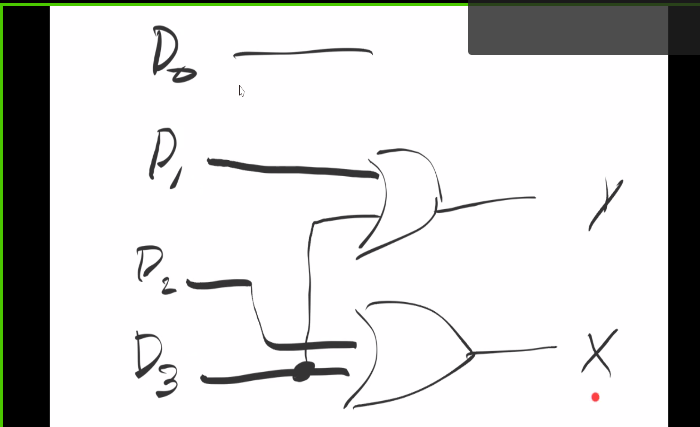 D0
D1
Y
D2
D3
X